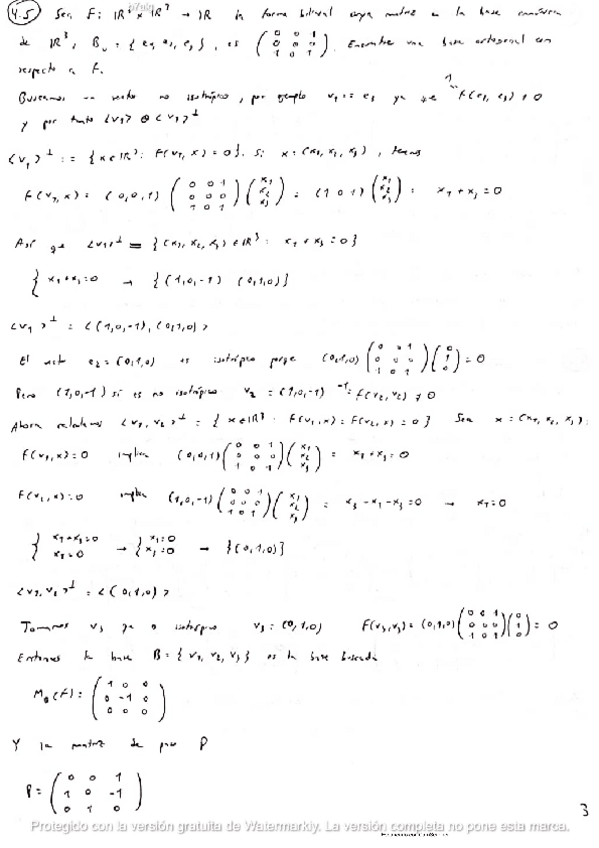 4.5) Sea F: ℝ³ × ℝ³ → ℝ la forma bilineal cuya matriz en la base canónica
de ℝ³, B_u = {e₁, e₂, e₃}, es (0 0 1 / 0 0 0 / 1 0 1). Encontrar una base ortogonal con
respecto a F.
Buscamos un vector no isotrópico, por ejemplo v₁ := e₃ ya que 1 = F(e₃, e₃) ≠ 0
y por tanto <v₁> ⊕ <v₁>^⊥
<v₁>^⊥ := {x ∈ ℝ³: F(v₁, x) = 0}. Si x = (x₁, x₂, x₃), tenemos
F(v₁, x) = (0,0,1) (0 0 1 / 0 0 0 / 1 0 1) (x₁ / x₂ / x₃) = (1 0 1) (x₁ / x₂ / x₃) = x₁ + x₃ = 0
Así que <v₁>^⊥ = {(x₁, x₂, x₃) ∈ ℝ³: x₁ + x₃ = 0}
{ x₁ + x₃ = 0 → {(1,0,-1) (0,1,0)}
<v₁>^⊥ = <(1,0,-1), (0,1,0)>
El vector e₂ = (0,1,0) es isotrópico porque (0,1,0) (0 0 1 / 0 0 0 / 1 0 1) (0 / 1 / 0) = 0
Pero (1,0,-1) si es no isotrópico v₂ = (1,0,-1) -1 = F(v₂, v₂) ≠ 0
Ahora calculamos <v₁, v₂>^⊥ = {x ∈ ℝ³: F(v₁, x) = F(v₂, x) = 0} Sea x = (x₁, x₂, x₃)
F(v₁, x) = 0 implica (0,0,1) (0 0 1 / 0 0 0 / 1 0 1) (x₁ / x₂ / x₃) = x₁ + x₃ = 0
F(v₂, x) = 0 implica (1,0,-1) (0 0 1 / 0 0 0 / 1 0 1) (x₁ / x₂ / x₃) = x₃ - x₁ - x₃ = 0 → x₁ = 0
{ x₁ + x₃ = 0 / x₁ = 0 → { x₁ = 0 / x₃ = 0 → {(0,1,0)}
<v₁, v₂>^⊥ = <(0,1,0)>
Tomamos v₃ ya isotrópico v₃ = (0,1,0) F(v₃, v₃) = (0,1,0) (0 0 1 / 0 0 0 / 1 0 1) (0 / 1 / 0) = 0
Entonces la base B = {v₁, v₂, v₃} es la base buscada
M_B(F) = (1 0 0 / 0 -1 0 / 0 0 0)
Y la matriz de paso P
P = (0 0 1 / 1 0 -1 / 0 1 0)
3
Protegido con la versión gratuita de Watermarkly. La versión completa no pone esta marca.